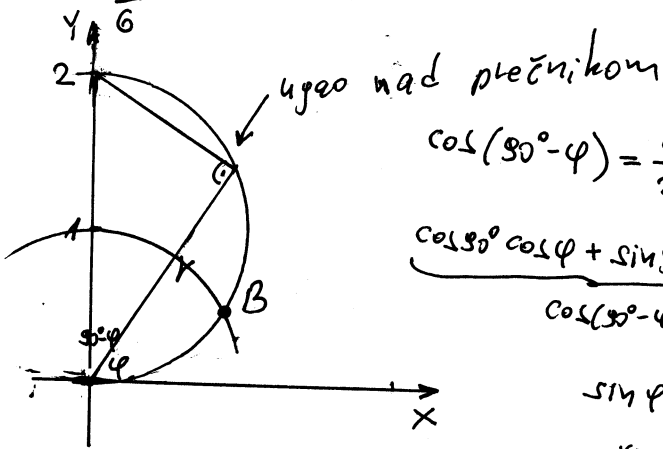 6
Y
2
ugao nad prečnikom
cos(90°-φ) =
cos90° cosφ + sin
cos(90°-φ
1
1
B
90°-φ
φ
X
sin φ